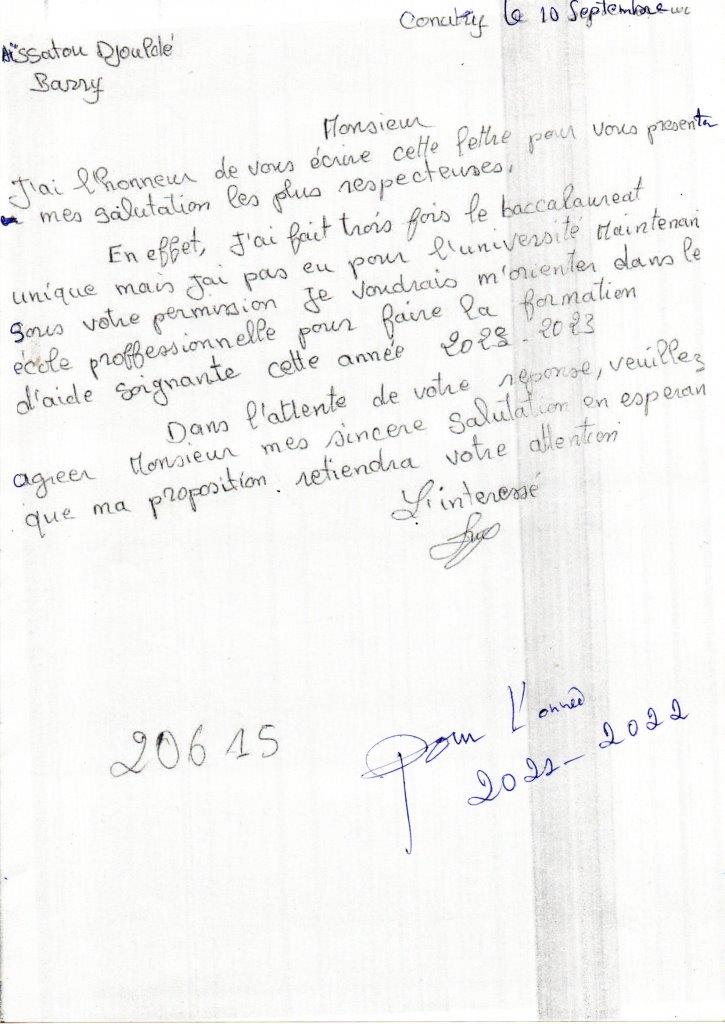 Conakry le 10 Septembre
Aïssatou Djouldé
Barry
Monsieur
J'ai l'honneur de vous écrire cette lettre pour vous presenter
mes salutation les plus respecteuses.
En effet, J'ai fait trois fois le baccalaureat
unique mais j'ai pas eu pour l'université Maintenan
sous votre permission Je voudrais m'orienter dans le
école proffessionnelle pour faire la formation
d'aide soignante cette année 2022-2023
Dans l'attente de votre reponse, veuillez
agreer Monsieur mes sincere salutation en esperan
que ma proposition retiendra votre attention
L'interessé
20615
Pour l'année
2021-2022